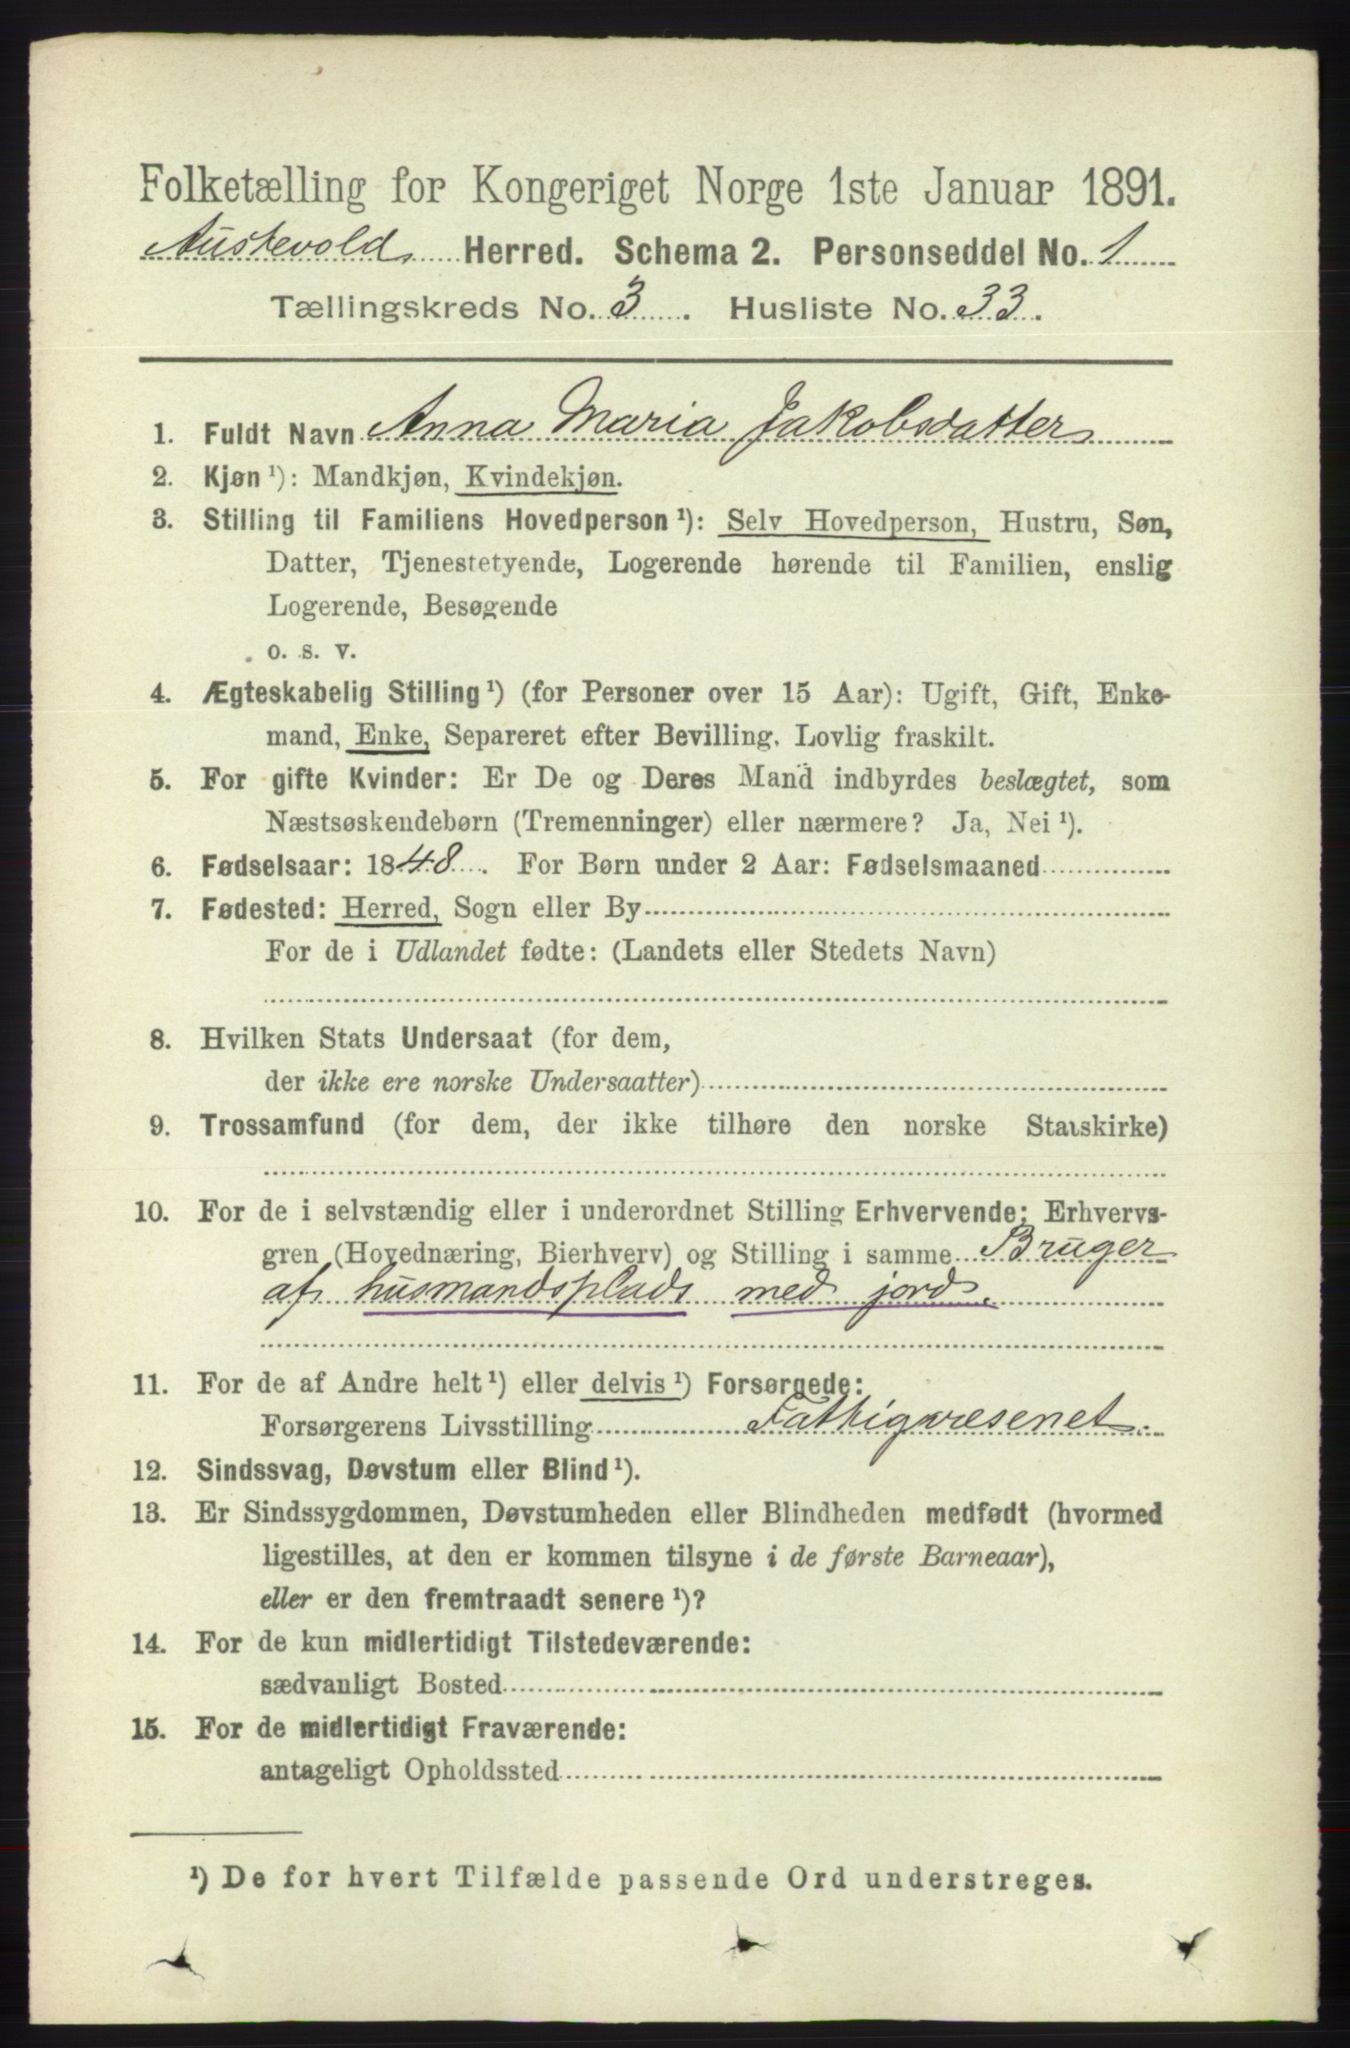 Folketælling for Kongeriget Norge 1ste Januar 1891.
Austevold Herred. Schema 2. Personseddel No. 1
Tællingskreds No. 3. Husliste No. 33.
1. Fuldt Navn Anna Maria Jakobsdatter
2. Kjøn ¹): Mandkjøn, Kvindekjøn.
3. Stilling til Familiens Hovedperson ¹): Selv Hovedperson, Hustru, Søn,
Datter, Tjenestetyende, Logerende hørende til Familien, enslig
Logerende, Besøgende
o. s. v.
4. Ægteskabelig Stilling ¹) (for Personer over 15 Aar): Ugift, Gift, Enke-
mand, Enke, Separeret efter Bevilling. Lovlig fraskilt.
5. For gifte Kvinder: Er De og Deres Mand indbyrdes beslægtet, som
Næstsøskendebørn (Tremenninger) eller nærmere? Ja, Nei ¹).
6. Fødselsaar: 1848. For Børn under 2 Aar: Fødselsmaaned
7. Fødested: Herred, Sogn eller By
For de i Udlandet fødte: (Landets eller Stedets Navn)
8. Hvilken Stats Undersaat (for dem,
der ikke ere norske Undersaatter)
9. Trossamfund (for dem, der ikke tilhøre den norske Statskirke)
10. For de i selvstændig eller i underordnet Stilling Erhvervende: Erhvervs-
gren (Hovednæring, Bierhverv) og Stilling i samme Bruger
af husmandsplads med jord.
11. For de af Andre helt ¹) eller delvis ¹) Forsørgede:
Forsørgerens Livsstilling Fattigvæsenet.
12. Sindssvag, Døvstum eller Blind ¹).
13. Er Sindssygdommen, Døvstumheden eller Blindheden medfødt (hvormed
ligestilles, at den er kommen tilsyne i de første Barneaar),
eller er den fremtraadt senere ¹)?
14. For de kun midlertidigt Tilstedeværende:
sædvanligt Bosted
15. For de midlertidigt Fraværende:
antageligt Opholdssted
¹) De for hvert Tilfælde passende Ord understreges.